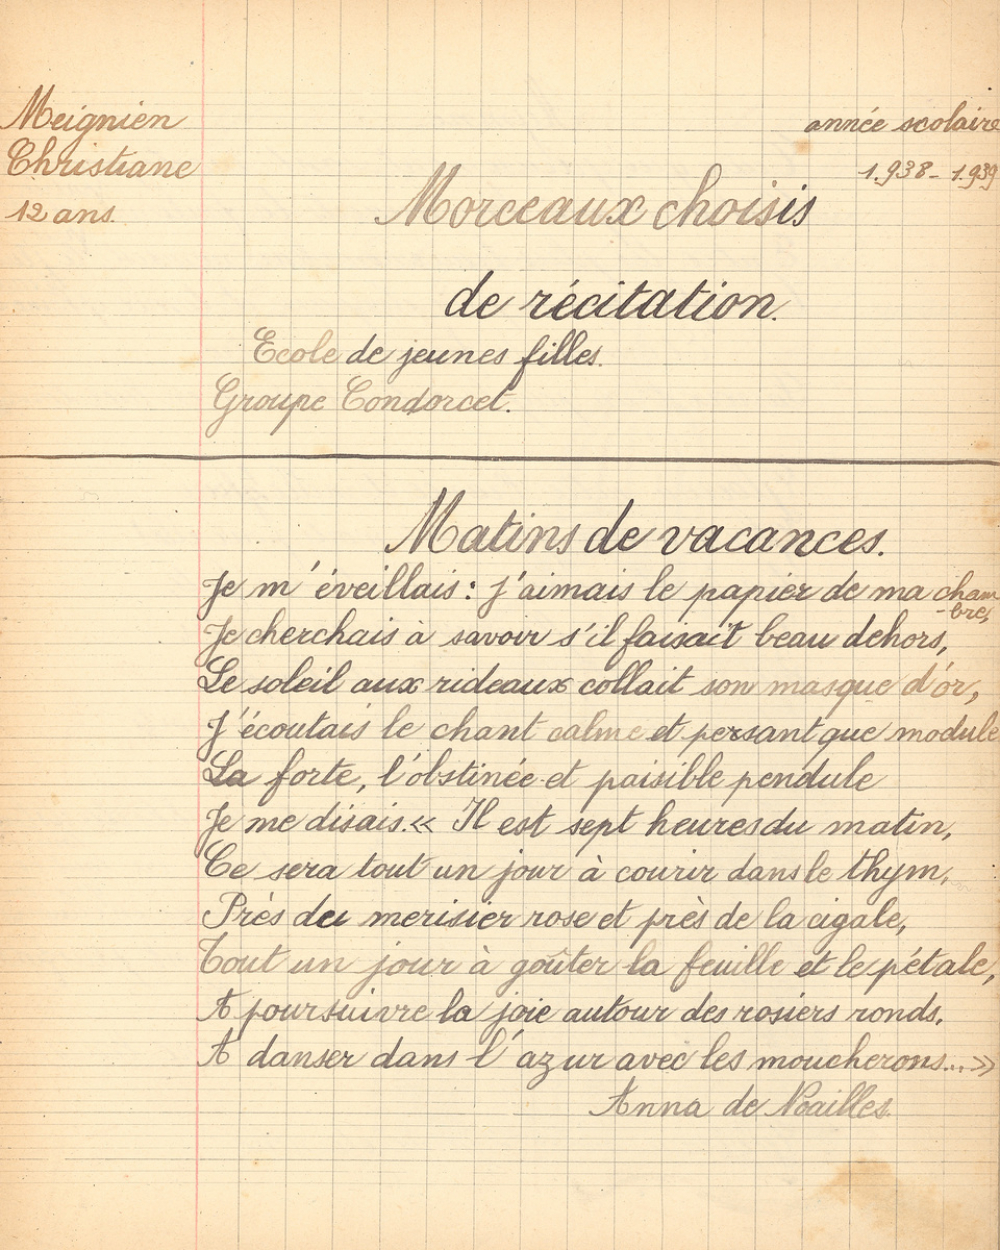 Meignien
Christiane
12 ans.
année scolaire
1.938 - 1.939
Morceaux choisis
de récitation.
Ecole de jeunes filles.
Groupe Condorcet.
Matins de vacances.
Je m'éveillais : j'aimais le papier de ma cham
-bre,
Je cherchais à savoir s'il faisait beau dehors,
Le soleil aux rideaux collait son masque d'or,
J'écoutais le chant calme et persant que module
La forte, l'obstinée et paisible pendule
Je me disais. « Il est sept heures du matin,
Ce sera tout un jour à courir dans le thym,
Près du merisier rose et près de la cigale,
Tout un jour à goûter la feuille et le pétale,
A poursuivre la joie autour des rosiers ronds,
A danser dans l'azur avec les moucherons... »
Anna de Noailles.